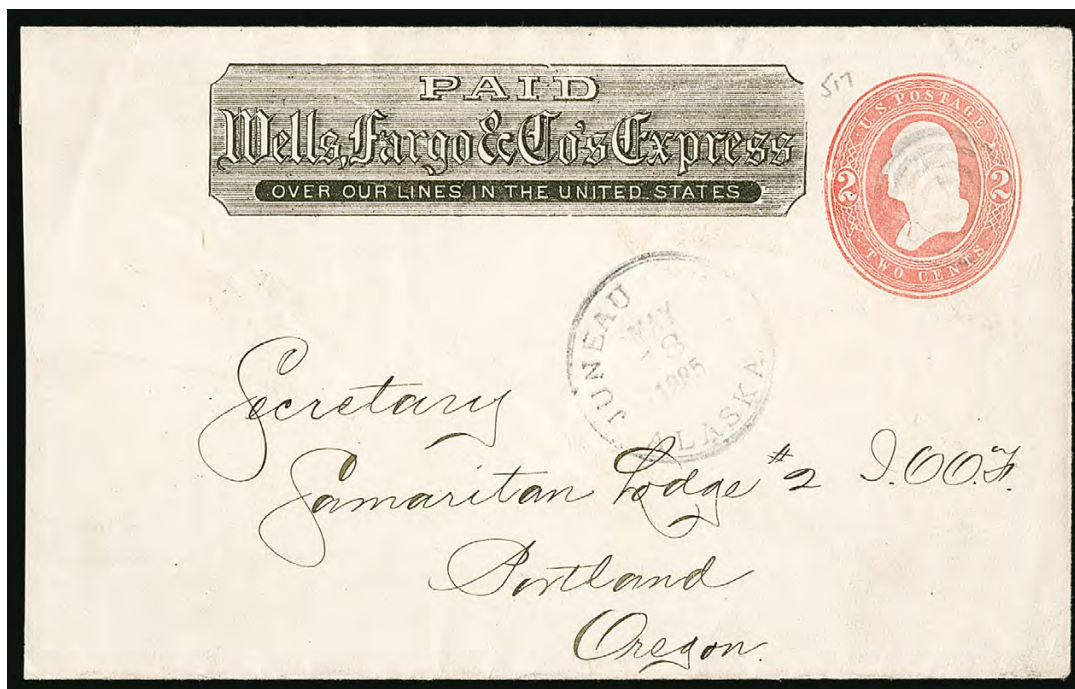 PAID
Wells, Fargo & Co's Express
OVER OUR LINES IN THE UNITED STATES
517
U.S. POSTAGE
2 2
TWO CENTS
JUNEAU
MAY
ALASKA
Secretary
Samaritan Lodge #2 I.O.O.F.
Portland
Oregon.